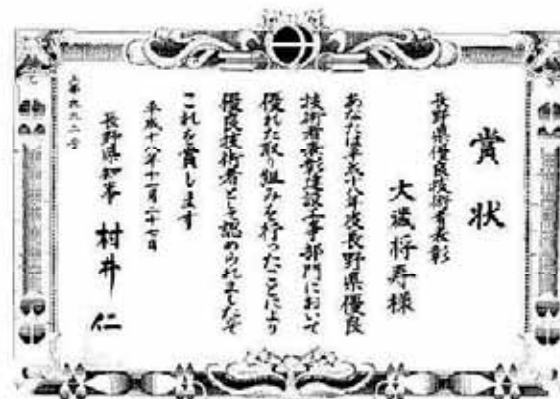 賞状
長野県優良技術者表彰
大蔵将寿様
あなたは平成十八年度長野県優良
技術者表彰建設工事部門において
優れた取り組みを行ったことにより
優良技術者として認められましたので
これを賞します
平成十八年十一月二十七日
長野県知事 村井仁